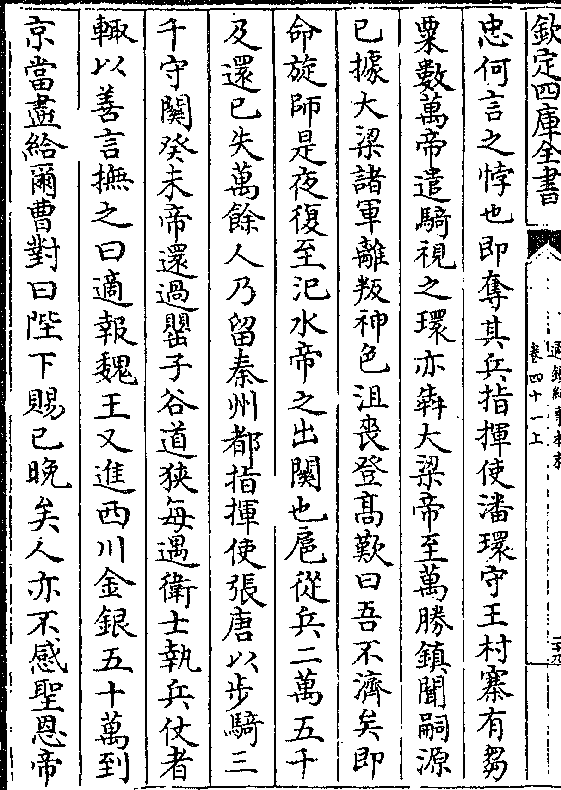 欽定四庫全書
卷四十一上
忠何言之悖也即奪其兵指揮使潘環守王村寨有芻
粟數萬帝遣騎視之環亦犇大梁帝至萬勝鎮聞嗣源
已據大梁諸軍離叛神色沮喪登髙歎曰吾不濟矣即
命旋師是夜復至汜水帝之出闗也扈從兵二萬五千
及還已失萬餘人乃留秦州都指揮使張唐以步騎三
千守闗癸未帝還過罌子谷道狹每遇衛士執兵仗者
輙以善言撫之曰適報魏王又進西川金銀五十萬到
京當盡給爾曹對曰陛下賜已晚矣人亦不感聖恩帝